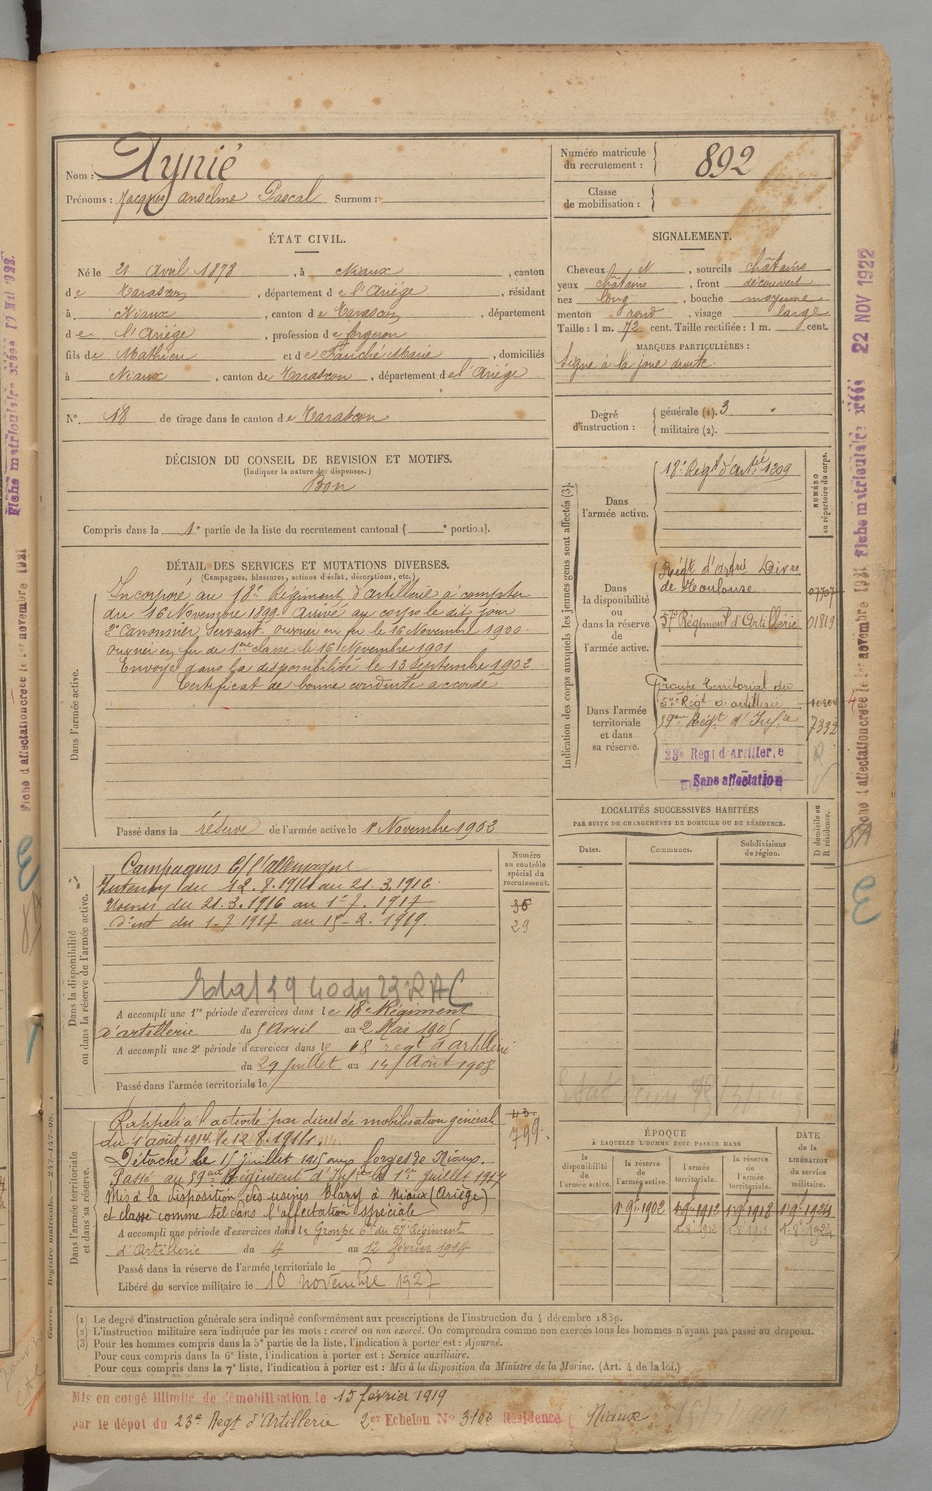 Nom : Aynié
Prénoms : Jacques Anselme Pascal Surnom :
Numéro matricule du recrutement : 892
Classe de mobilisation :
ÉTAT CIVIL.
Né le 21 Avril 1878, à Niaux, canton
de Tarascon, département de l'Ariège, résidant
à Niaux, canton de Tarascon, département
de l'Ariège, profession de forgeron
fils de Mathieu et de Fauché Marie, domiciliés
à Niaux, canton de Tarascon, département de l'Ariège
N°. 18 de tirage dans le canton de Tarascon
SIGNALEMENT.
Cheveux N, sourcils châtains
yeux châtains, front découvert
nez long, bouche moyenne
menton rond, visage large
Taille : 1 m. 72 cent. Taille rectifiée : 1 m. cent.
MARQUES PARTICULIÈRES :
Signe à la joue droite
Degré d'instruction : générale (1). 3
militaire (2).
DÉCISION DU CONSEIL DE REVISION ET MOTIFS.
(Indiquer la nature des dispenses.)
Bon
Compris dans la 1e partie de la liste du recrutement cantonal ( e portion).
DÉTAIL DES SERVICES ET MUTATIONS DIVERSES.
(Campagnes, blessures, actions d'éclat, décorations, etc.)
Dans l'armée active.
Incorporé au 18e Régiment d'Artillerie à compter
du 16 Novembre 1899. Arrivé au corps le dit jour
2e Canonnier Servant. ouvrier en fer le 16 Novembre 1900.
ouvrier en fer de 1ère classe le 16 Novembre 1901
Envoyé dans la disponibilité le 13 Septembre 1902
Certificat de bonne conduite accordé
Passé dans la réserve de l'armée active le 1 Novembre 1902
Indication des corps auxquels les jeunes gens sont affectés (3).
NUMÉRO au répertoire du corps.
Dans l'armée active.
18e Regt d'Artie 1209
Dans la disponibilité ou dans la réserve de l'armée active.
de Toulouse
57e Régiment d'Artillerie 01819
Dans l'armée territoriale et dans sa réserve.
Groupe territorial du
57e Regt d'artillerie
7332
23e Régt d'Artillerie
Sans affectation
LOCALITÉS SUCCESSIVES HABITÉES
PAR SUITE DE CHANGEMENTS DE DOMICILE OU DE RÉSIDENCE.
Dates. Communes. Subdivisions de région. D domicile ou R résidence.
Dans la disponibilité ou dans la réserve de l'armée active.
Numéro au contrôle spécial du recrutement.
Campagnes c/ l'allemagne
Intérieur du 12.8.1914 au 21.3.1916
Usines du 21.3.1916 au 1-7.1917
D'int du 1-7 1917 au 15-2.1919.
36
29
A accompli une 1re période d'exercices dans le 18e Régiment
d'artillerie du 5 Avril au 2 Mai 1905
A accompli une 2e période d'exercices dans le 18e regt d'artillerie
du 29 Juillet au 14 Août 1908
Passé dans l'armée territoriale le
Dans l'armée territoriale et dans sa réserve.
43.
799.
Rappelé à l'activité par décret de mobilisation générale
du 1 août 1914. le 12.8.1914.
Détaché le 15 juillet 1915 aux forges de Niaux.
Passé au 59e Régiment d'Infie le 1er juillet 1917
Mis à la disposition des usines à Niaux (Ariège)
et classé comme tel dans l'affectation spéciale
A accompli une période d'exercices dans le Groupe du 57e Régiment
d'Artillerie du 4 au 12 février 1914
Passé dans la réserve de l'armée territoriale le
Libéré du service militaire le 10 novembre 1927
ÉPOQUE
À LAQUELLE L'HOMME DOIT PASSER DANS
la disponibilité de l'armée active.
la réserve de l'armée active.
l'armée territoriale.
la réserve de l'armée territoriale.
DATE de la LIBÉRATION du service militaire.
1 9bre 1902 1 9bre 1912 1 9bre 1918 1 9bre 1924
(1) Le degré d'instruction générale sera indiqué conformément aux prescriptions de l'instruction du 4 décembre 1889.
(2) L'instruction militaire sera indiquée par les mots : exercé ou non exercé. On comprendra comme non exercés tous les hommes n'ayant pas passé au drapeau.
(3) Pour les hommes compris dans la 5e partie de la liste, l'indication à porter est : Ajourné.
Pour ceux compris dans la 6e liste, l'indication à porter est : Service auxiliaire.
Pour ceux compris dans la 7e liste, l'indication à porter est : Mis à la disposition du Ministre de la Marine. (Art. 4 de la loi.)
Mis en congé illimité de démobilisation le 15 février 1919
par le dépôt du 23e Regt d'Artillerie 2er Echelon N° 3100 Résidence Niaux
Guerre. Registre matricule.
22 NOV 1922